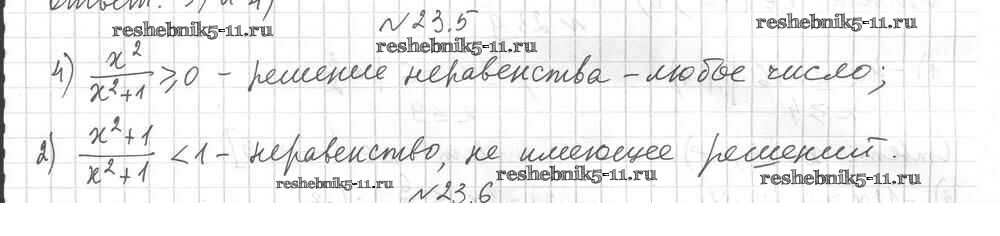 ответ: 3) и 4)
№23.5
reshebnik5-11.ru reshebnik5-11.ru reshebnik5-11.ru
4) x²/(x²+1) ⩾ 0 - решение неравенства - любое число;
2) (x²+1)/(x²+1) < 1 - неравенство, не имеющее решений.
reshebnik5-11.ru reshebnik5-11.ru reshebnik5-11.ru
№23.6